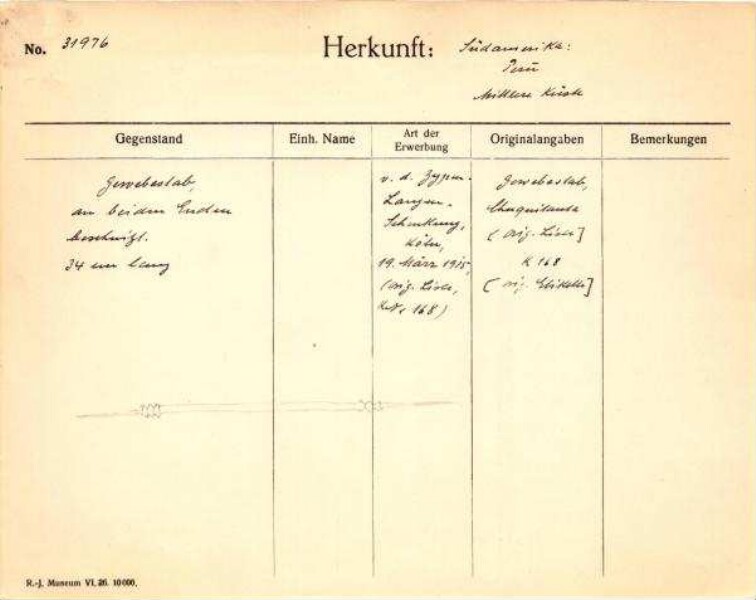 No. 31976
Herkunft: Südamerika:
Perū
Mittlere Küste
Gegenstand
Einh. Name
Art der
Erwerbung
Originalangaben
Bemerkungen
Gewebestab,
an beiden Enden
beschnitzt.
34 cm lang
v. d. Zypen-
Langen-
Schenkung,
Köln,
19. März 1915,
(orig. Liste,
168)
Gewebestab,
Chuquitanta
(orig. Liste]
K 168
[orig. Etikette]
R.-J. Museum VI. 26. 10000.